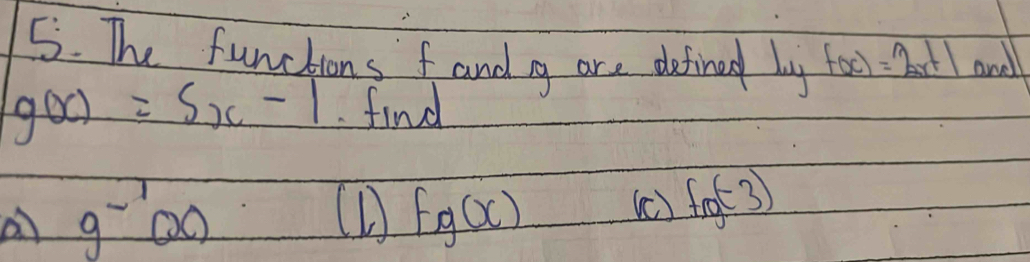 5. The functions f and g are defined by f(x) = 2x+1 and
g(x) = 5x - 1. find
a) g⁻¹(x) (b) fg(x) (c) fg(-3)